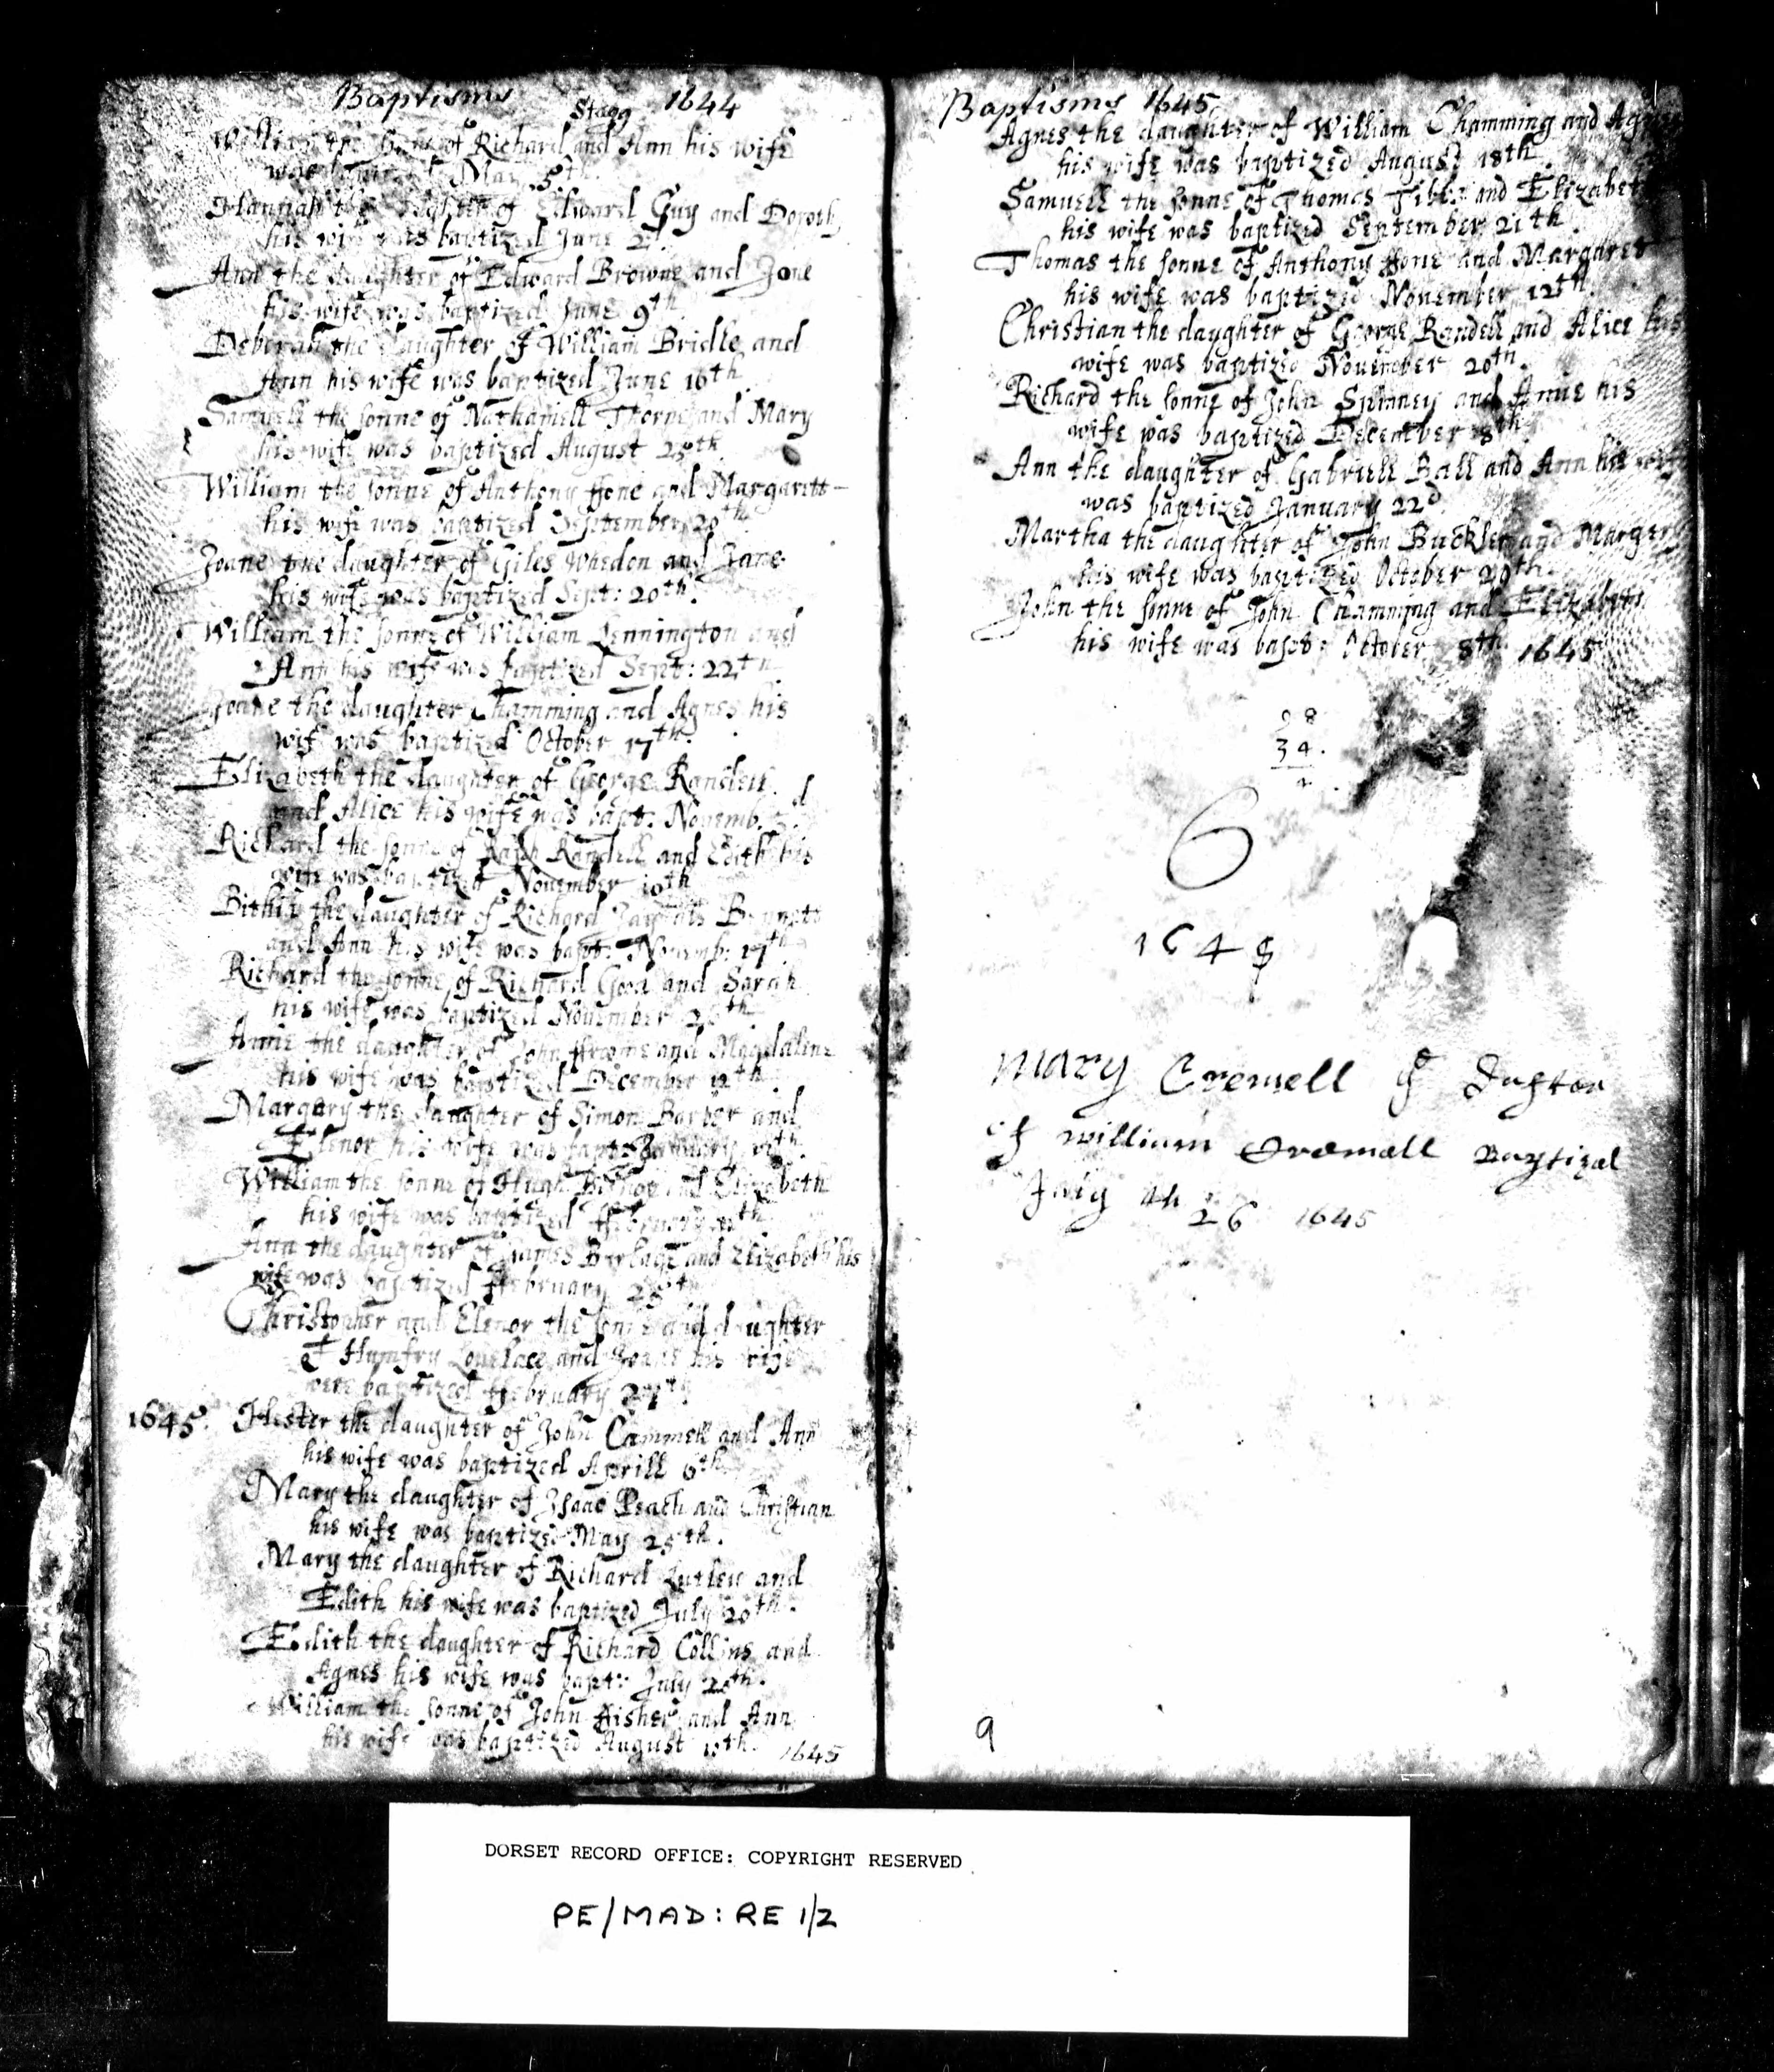 Baptisms 1644
Stagg
William the sonne of Richard and Ann his wife
was May 5th.
Hannah the daughter of Edward Guy and Doroth
his wife was baptized June 2d.
Ann the daughter of Edward Browne and Jone
his wife was baptized June 9th.
Deborah the daughter of William Bridle and
Ann his wife was baptized June 16th
Samuell the sonne of Nathaniell Thorne and Mary
his wife was baptized August 25th
William the sonne of Anthony ffone and Margarett
his wife was baptized September 20th.
Joane the daughter of Giles Whedon and Jane
his wife was baptized Sept: 20th.
William the sonne of William Lennington and
Ann his wife was baptized Sept: 22th
Joane the daughter Chamming and Agnes his
wife was baptized October 17th.
Elizabeth the daughter of George Randell
and Alice his wife was bapt: Novemb. d
Richard the sonne of Ralph Randell and Edith his
wife was baptized November 10th
the daughter of Richard
and Ann his wife was bapt: Novemb: 17th
Richard the sonne of Richard and Sarah
his wife was baptized November th
Anne the daughter of John ffroome and Magdaline
his wife was baptized December 12th
Margary the daughter of Simon Barber and
Elenor his wife was bapt: January th.
William the sonne of Hugh Bishop and Elizabeth
his wife was baptized ffebruary th.
Ann the daughter of James and Elizabeth his
wife was baptized ffebruary th
Christopher and Elenor the sonne and daughter
of Humfry Lovelace and Joane his wife
were baptized ffebruary th
1645. Hester the daughter of John Cammell and Ann
his wife was baptized Aprill 6th.
Mary the daughter of Isaac Peach and Christian
his wife was baptized May 25th.
Mary the daughter of Richard Lutley and
Edith his wife was baptized July 20th.
Edith the daughter of Richard Collins and
Agnes his wife was bapt: July 20th.
William the sonne of John ffisher and Ann
his wife was baptized August 10th. 1645
Baptisms 1645
Agnes the daughter of William Chamming and Agnes
his wife was baptized August 18th.
Samuell the sonne of Thomas and Elizabet
his wife was baptized September 21th.
Thomas the sonne of Anthony ffone and Margaret
his wife was baptized November 12th.
Christian the daughter of George Randell and Alice his
wife was baptized November 20th.
Richard the sonne of John Spinney and Anne his
wife was baptized December 8th
Ann the daughter of Gabriell Ball and Ann his wife
was baptized January 22d
Martha the daughter of John Buckler and Marger
his wife was baptized October 29th.
John the sonne of John Chamming and Elizabeth
his wife was bapt: October 8th 1645
34.
6
1645
Mary Cremell
of william Cremell Baptized
26 1645
9
DORSET RECORD OFFICE: COPYRIGHT RESERVED
PE/MAD: RE 1/2